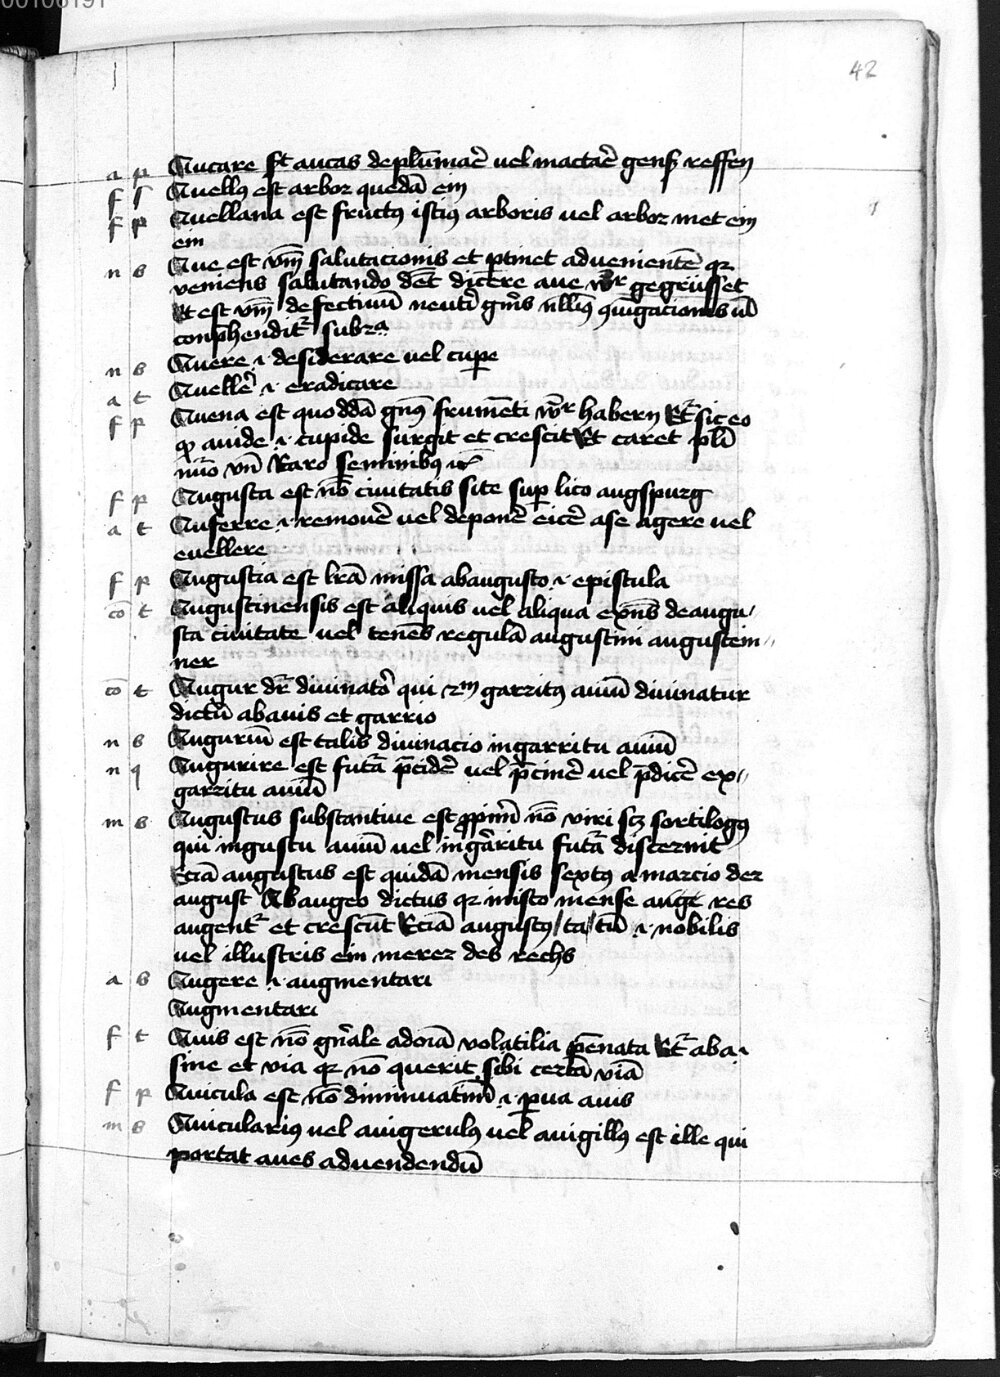 00106191
42
a p Aucare est aucas deplumaē vel mactaē gens reffen
f s Avellus est arbor quedā ein
f p Avellana est fructus istius arboris vel arbor met ein
ein
n b Ave est vm̄ salutacionis et ptinet ad venientē qr
veniens salutando det dicere ave wr gegrüsset
Et est vm̄ defectiuū neutri gnis nllius ꝯiugacionis vl
conphenditr sub
n b Avere .i. desiderare vel cupe
a t Avelle .i. eradicare
f p Avena est quoddā gns frumēti wr habern Et sic eo
qp avide .i. cupide surgit et crescit Et caret pli
nūo vn̄ Raro seminibus
f p Augusta est nō civitatis site sup lico augspurg
a t Auferre .i. removē vel deponē eicē a se agere vel
evellere
f p Augustia est lrā missa ab augusto .i. epistula
cō t Augustinensis est aliquis vel aliqua exns de augu
sta civitate vel tenēs regulā augustini augustein
ner
cō t Augur dr divinator qui garritus aviū divinatur
dictū ab avis et garrio
n b Auguriū est talis divinacio in garritu aviū
n q Augurire est futā pcidē vel pcinē vel pdicē ex
garritu aviū
m b Augustus substantive est nō viri scz sortilogus
qui in gustu aviū vel in garritu futā discernit
Eciā augustus est quidā mensis sextus a marcio der
august Ab augeo dictus qr in isto mense augt res
augentr et crescūt Eciā augustus / ta / tū .i. nobilis
vel illustris ein merer des rechs
a b Augere .i. augmentari
Augmentari
f t Avis est nō gn̄ale ad oīa volatilia pēnata Et ab a .i.
sine et via qr nō querit sibi certā viā
f p Avicula est nō diminuatiuū .i. pua avis
m b Avicularius vel avigerulus vel avigillus est ille qui
portat aves ad vendendū